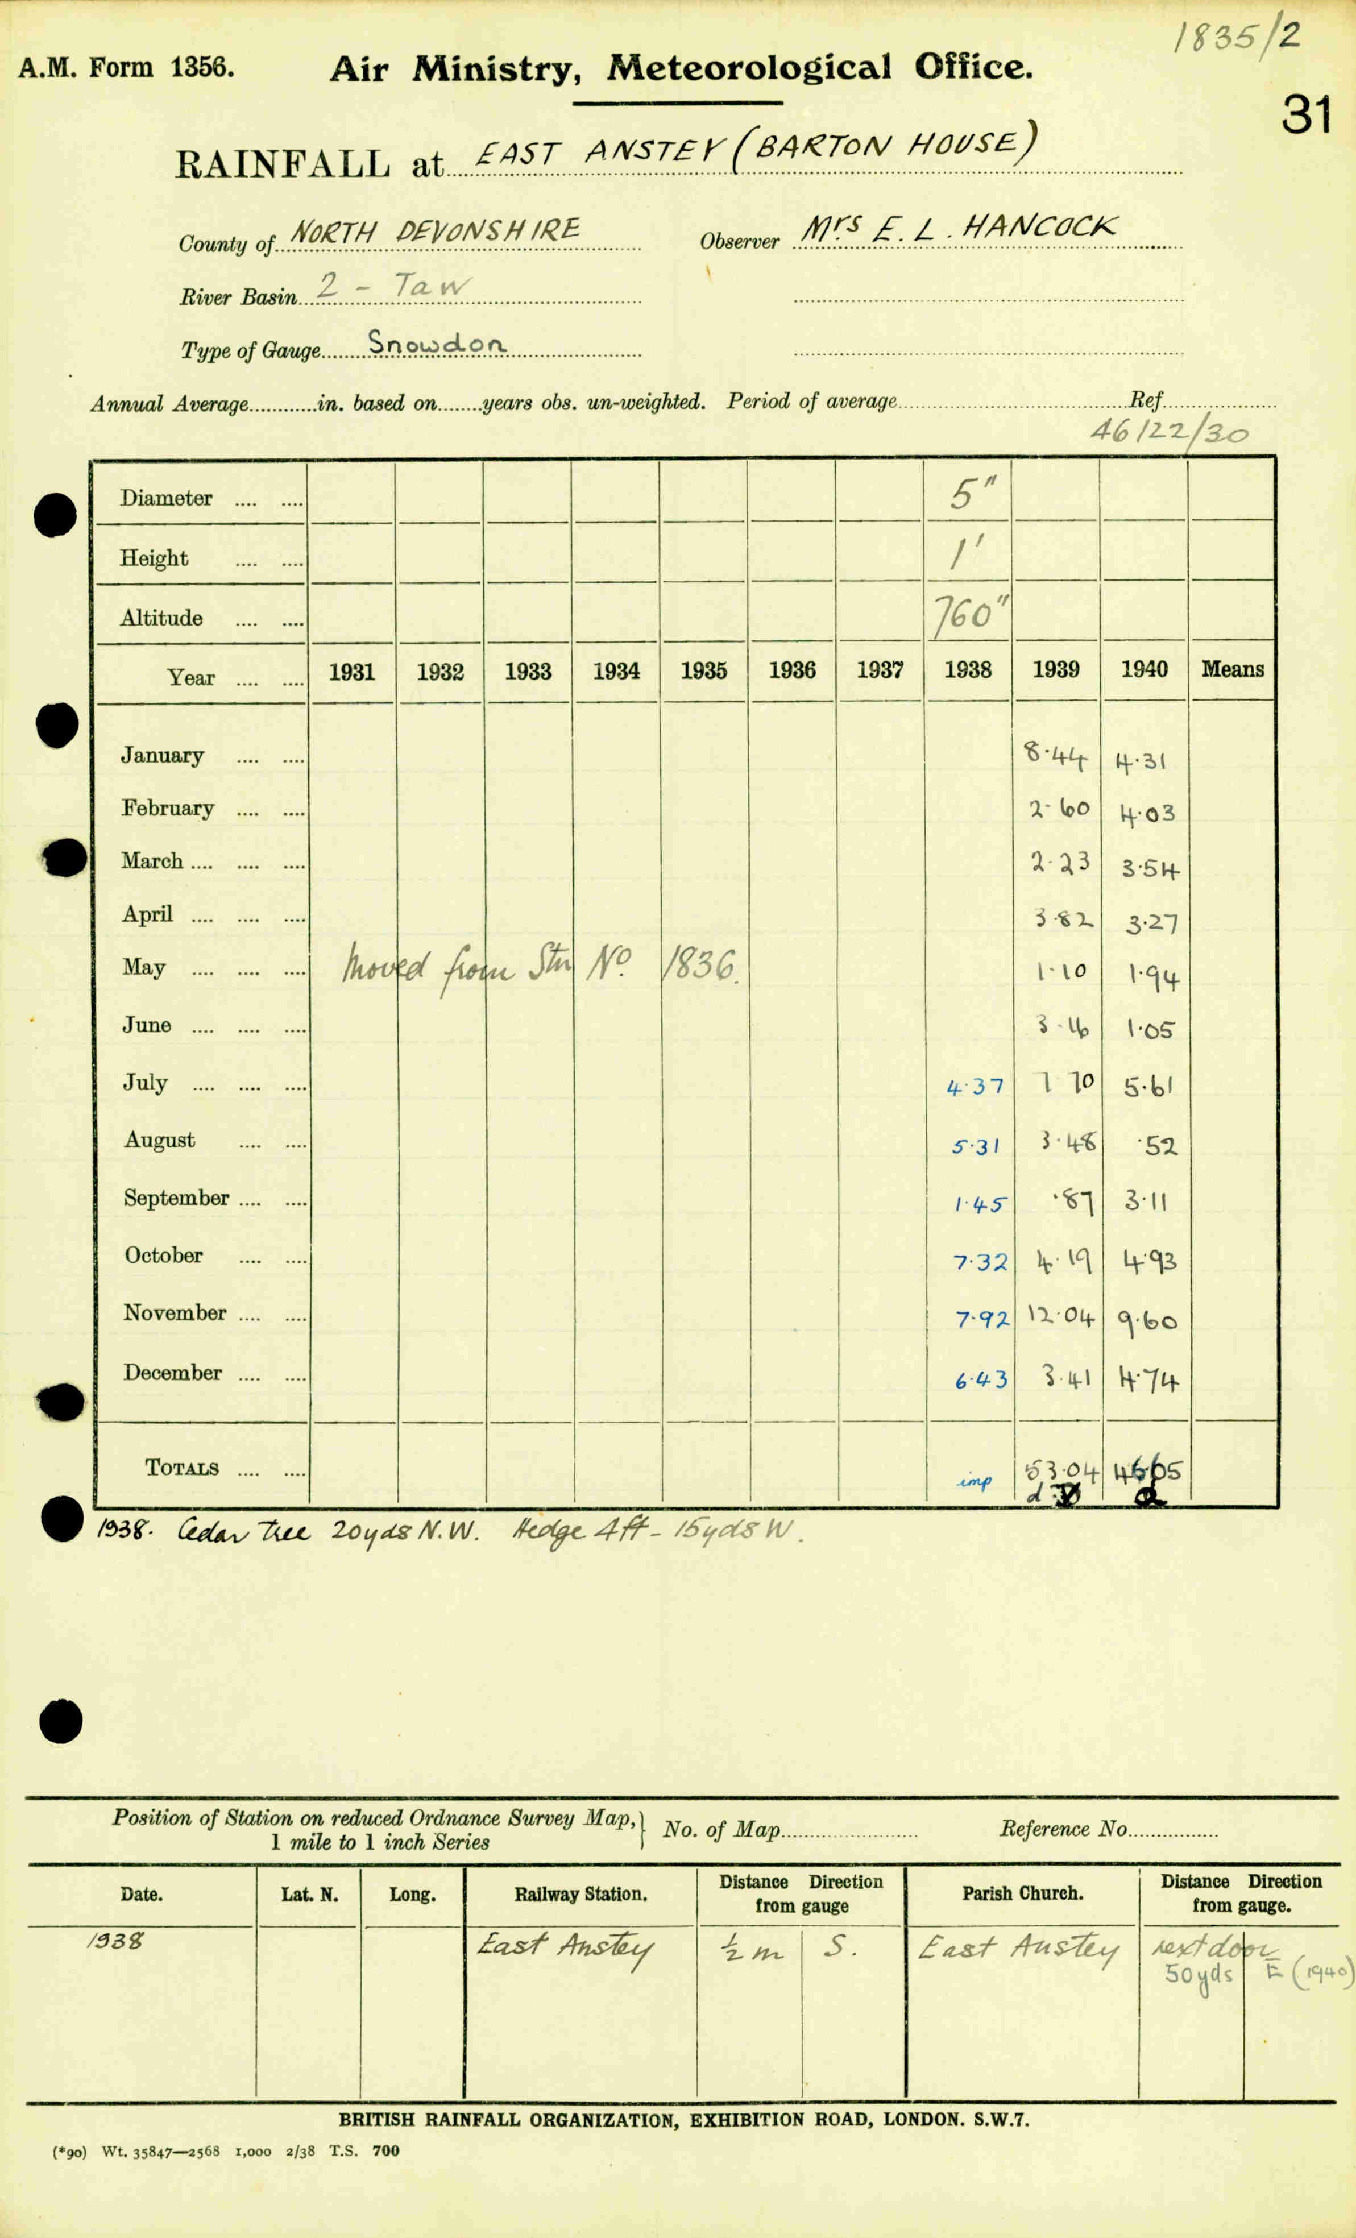 1835/2
A.M. Form 1356. Air Ministry, Meteorological Office.
31
RAINFALL at EAST ANSTEY (BARTON HOUSE)
County of NORTH DEVONSHIRE Observer Mrs E. L. HANCOCK
River Basin 2 - Taw
Type of Gauge Snowdon
Annual Average............in. based on........years obs. un-weighted. Period of average.................Ref.................
46/22/30
Diameter .... .... 5"
Height .... .... 1'
Altitude .... .... 760"
Year .... .... 1931 1932 1933 1934 1935 1936 1937 1938 1939 1940 Means
January .... .... 8·44 4·31
February .... .... 2·60 4·03
March .... .... .... 2·23 3·54
April .... .... .... 3·82 3·27
May .... .... .... Moved from Stn No. 1836. 1·10 1·94
June .... .... .... 3·16 1·05
July .... .... .... 4·37 7 70 5·61
August .... .... 5·31 3·48 ·52
September .... .... 1·45 ·87 3·11
October .... .... 7·32 4·19 4·93
November .... .... 7·92 12·04 9·60
December .... .... 6·43 3·41 4·74
TOTALS .... .... imp 53·04 46·65
1938. Cedar Tree 20yds N.W. Hedge 4ft - 15yds W.
Position of Station on reduced Ordnance Survey Map, } No. of Map........................ Reference No................
1 mile to 1 inch Series
Date. Lat. N. Long. Railway Station. Distance Direction from gauge Parish Church. Distance Direction from gauge.
1938 East Anstey ½ m S. East Anstey next door
50yds E (1940)
BRITISH RAINFALL ORGANIZATION, EXHIBITION ROAD, LONDON. S.W.7.
(*90) Wt. 35847—2568 1,000 2/38 T.S. 700